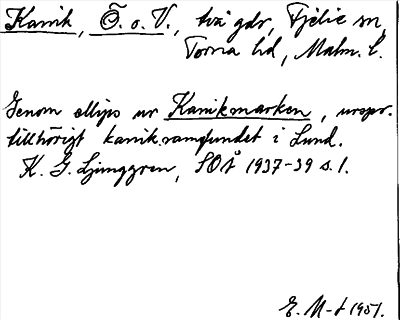 Kanik, Ö. o. V., två gdr, Fjelie sn,
Torna hd, Malm. l.
Genom ellips ur Kanikmarken, urspr.
tillhörigt kaniksamfundet i Lund.
K. G. Ljunggren, SOÅ 1937-39 s. 1.
E. M-t 1951.